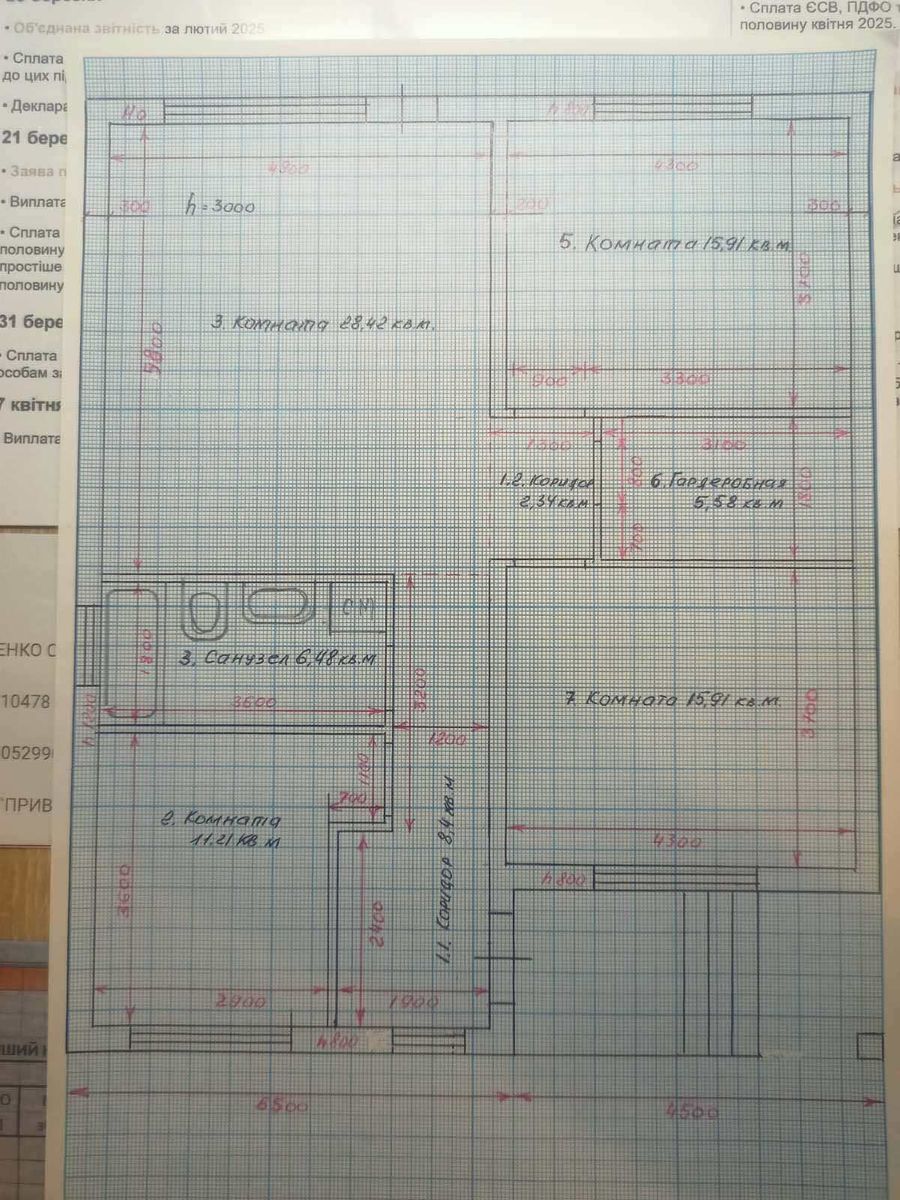 • Об'єднана звітність за лютий 2025
• Сплата ЄСВ, ПДФО
половину квітня 2025.
• Сплата
до цих пі
• Деклара
21 бере
• Заява п
• Виплата
• Сплата
половину
простіше
половину
31 бере
• Сплата
особам з
7 квітня
Виплата
ЕНКО С
10478
05299
"ПРИВ
ший
Н0
h 800
4300
4300
300
h = 3000
200
300
5. Комната 15,91 кв.м.
3700
3. Комната 28,42 кв.м.
900
3300
1300
3100
800
1.2. Коридор
2,34 кв.м
6. Гардеробная
5,58 кв.м
1800
700
СМ
1800
3. Санузел 6,48 кв.м
3600
3200
h 1200
1200
7. Комната 15,91 кв.м.
3700
1100
700
2. Комната
11,21 кв.м
4300
h 800
3600
2400
1.1. Коридор 8,4 кв.м
1900
h 800
6500
4500